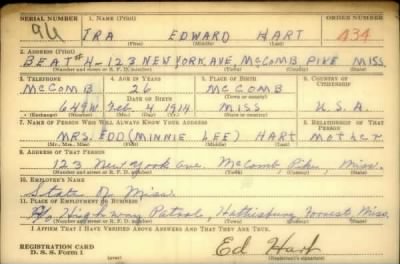 SERIAL NUMBER 1. NAME (Print) ORDER NUMBER
94 IRA EDWARD HART 434
(First) (Middle) (Last)
2. ADDRESS (Print)
BEAT #4-123 NEW YORK AVE, McCOMB PIKE MISS.
(Number and street or R. F. D. number) (Town) (County) (State)
3. TELEPHONE 4. AGE IN YEARS 5. PLACE OF BIRTH 6. COUNTRY OF CITIZENSHIP
McCOMB 26 McCOMB
DATE OF BIRTH
649W Feb. 4 1914 MISS U.S.A.
(Exchange) (Number) (Mo.) (Day) (Yr.) (State or country)
7. NAME OF PERSON WHO WILL ALWAYS KNOW YOUR ADDRESS 8. RELATIONSHIP OF THAT PERSON
MRS. EDD (MINNIE LEE) HART MOTHER
(Mr., Mrs., Miss) (First) (Middle) (Last)
9. ADDRESS OF THAT PERSON
123 New York Ave. McComb, Pike, Miss.
(Number and street or R. F. D. number) (Town) (County) (State)
10. EMPLOYER'S NAME
State of Miss.
11. PLACE OF EMPLOYMENT OR BUSINESS
Highway Patrol, Hattisburg Forrest Miss.
(Number and street or R. F. D. number) (Town) (County) (State)
I AFFIRM THAT I HAVE VERIFIED ABOVE ANSWERS AND THAT THEY ARE TRUE.
REGISTRATION CARD
D. S. S. Form 1 Ed Hart
(over) (Registrant's signature)